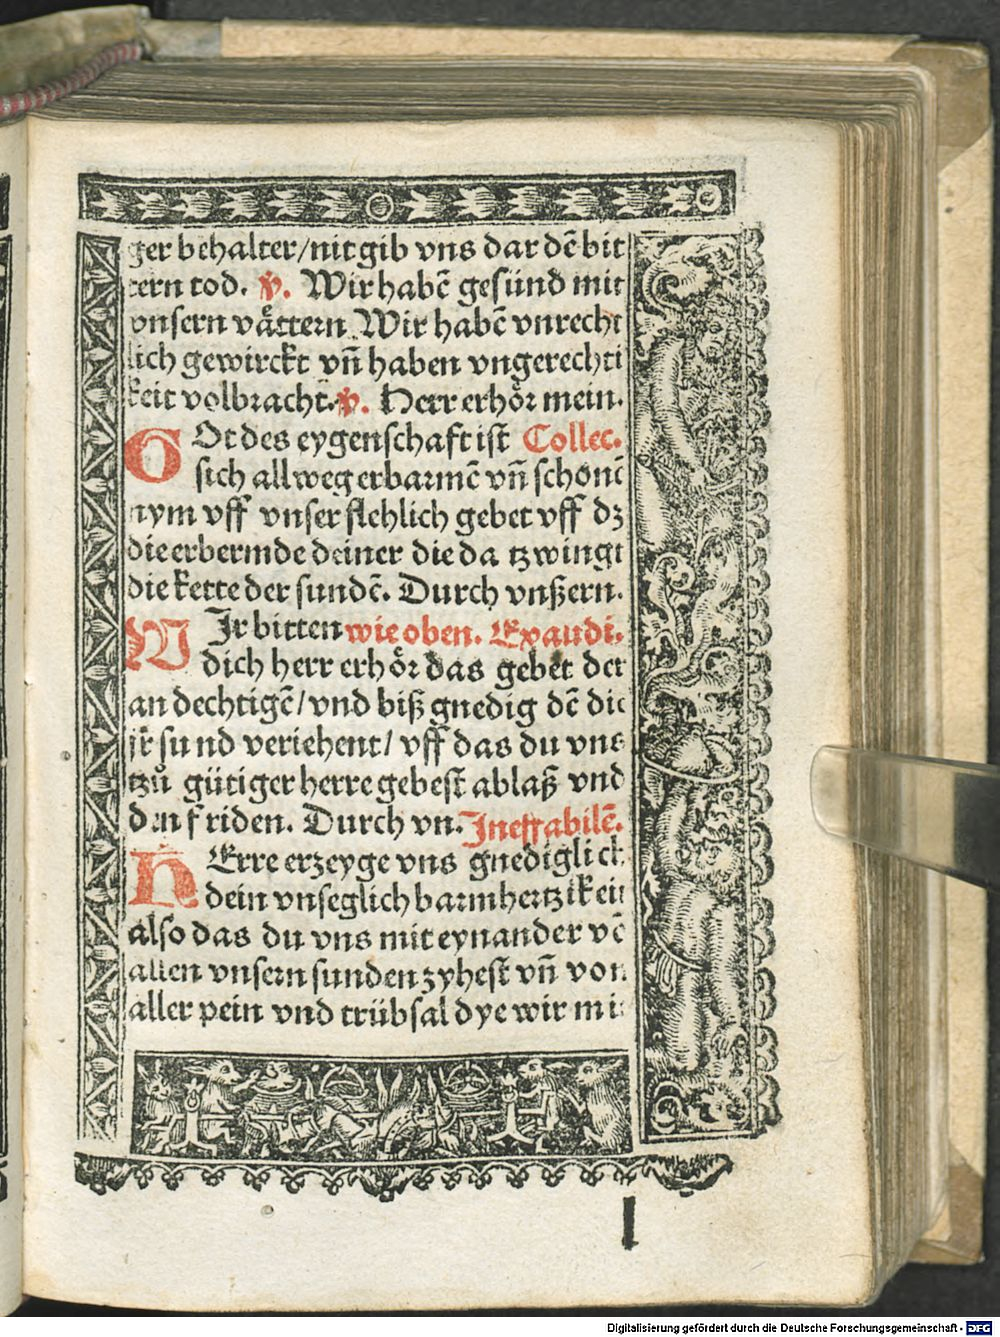 ger behalter/nit gib vns dar dē bit
tern tod. v. Wir habē gesünd mit
vnsern våttern Wir habē vnrecht
lich gewirckt vn̄ haben vngerechti
keit volbracht. v. Herr erhör mein.
GOt des eygenschaft ist Collec.
sich allweg erbarmē vn̄ schonē
nym vff vnser flehlich gebet vff dz
die erbermde deiner die da tzwingt
die kette der sundē. Durch vnßern.
WIr bitten wie oben. Exaudi.
dich herr erhör das gebet der
an dechtigē/vnd biß gnedig dē die
jr sund veriehent/ vff das du vns
tzů gütiger herre gebest ablaß vnd
den friden. Durch vn. Ineffabilē.
HErre erzeyge vns gnediglich
dein vnseglich barmhertzikeit
also das du vns mit eynander vō
allen vnsern sunden zyhest vn̄ von
aller pein vnd trübsal dye wir mi
l
Digitalisierung gefördert durch die Deutsche Forschungsgemeinschaft - DFG